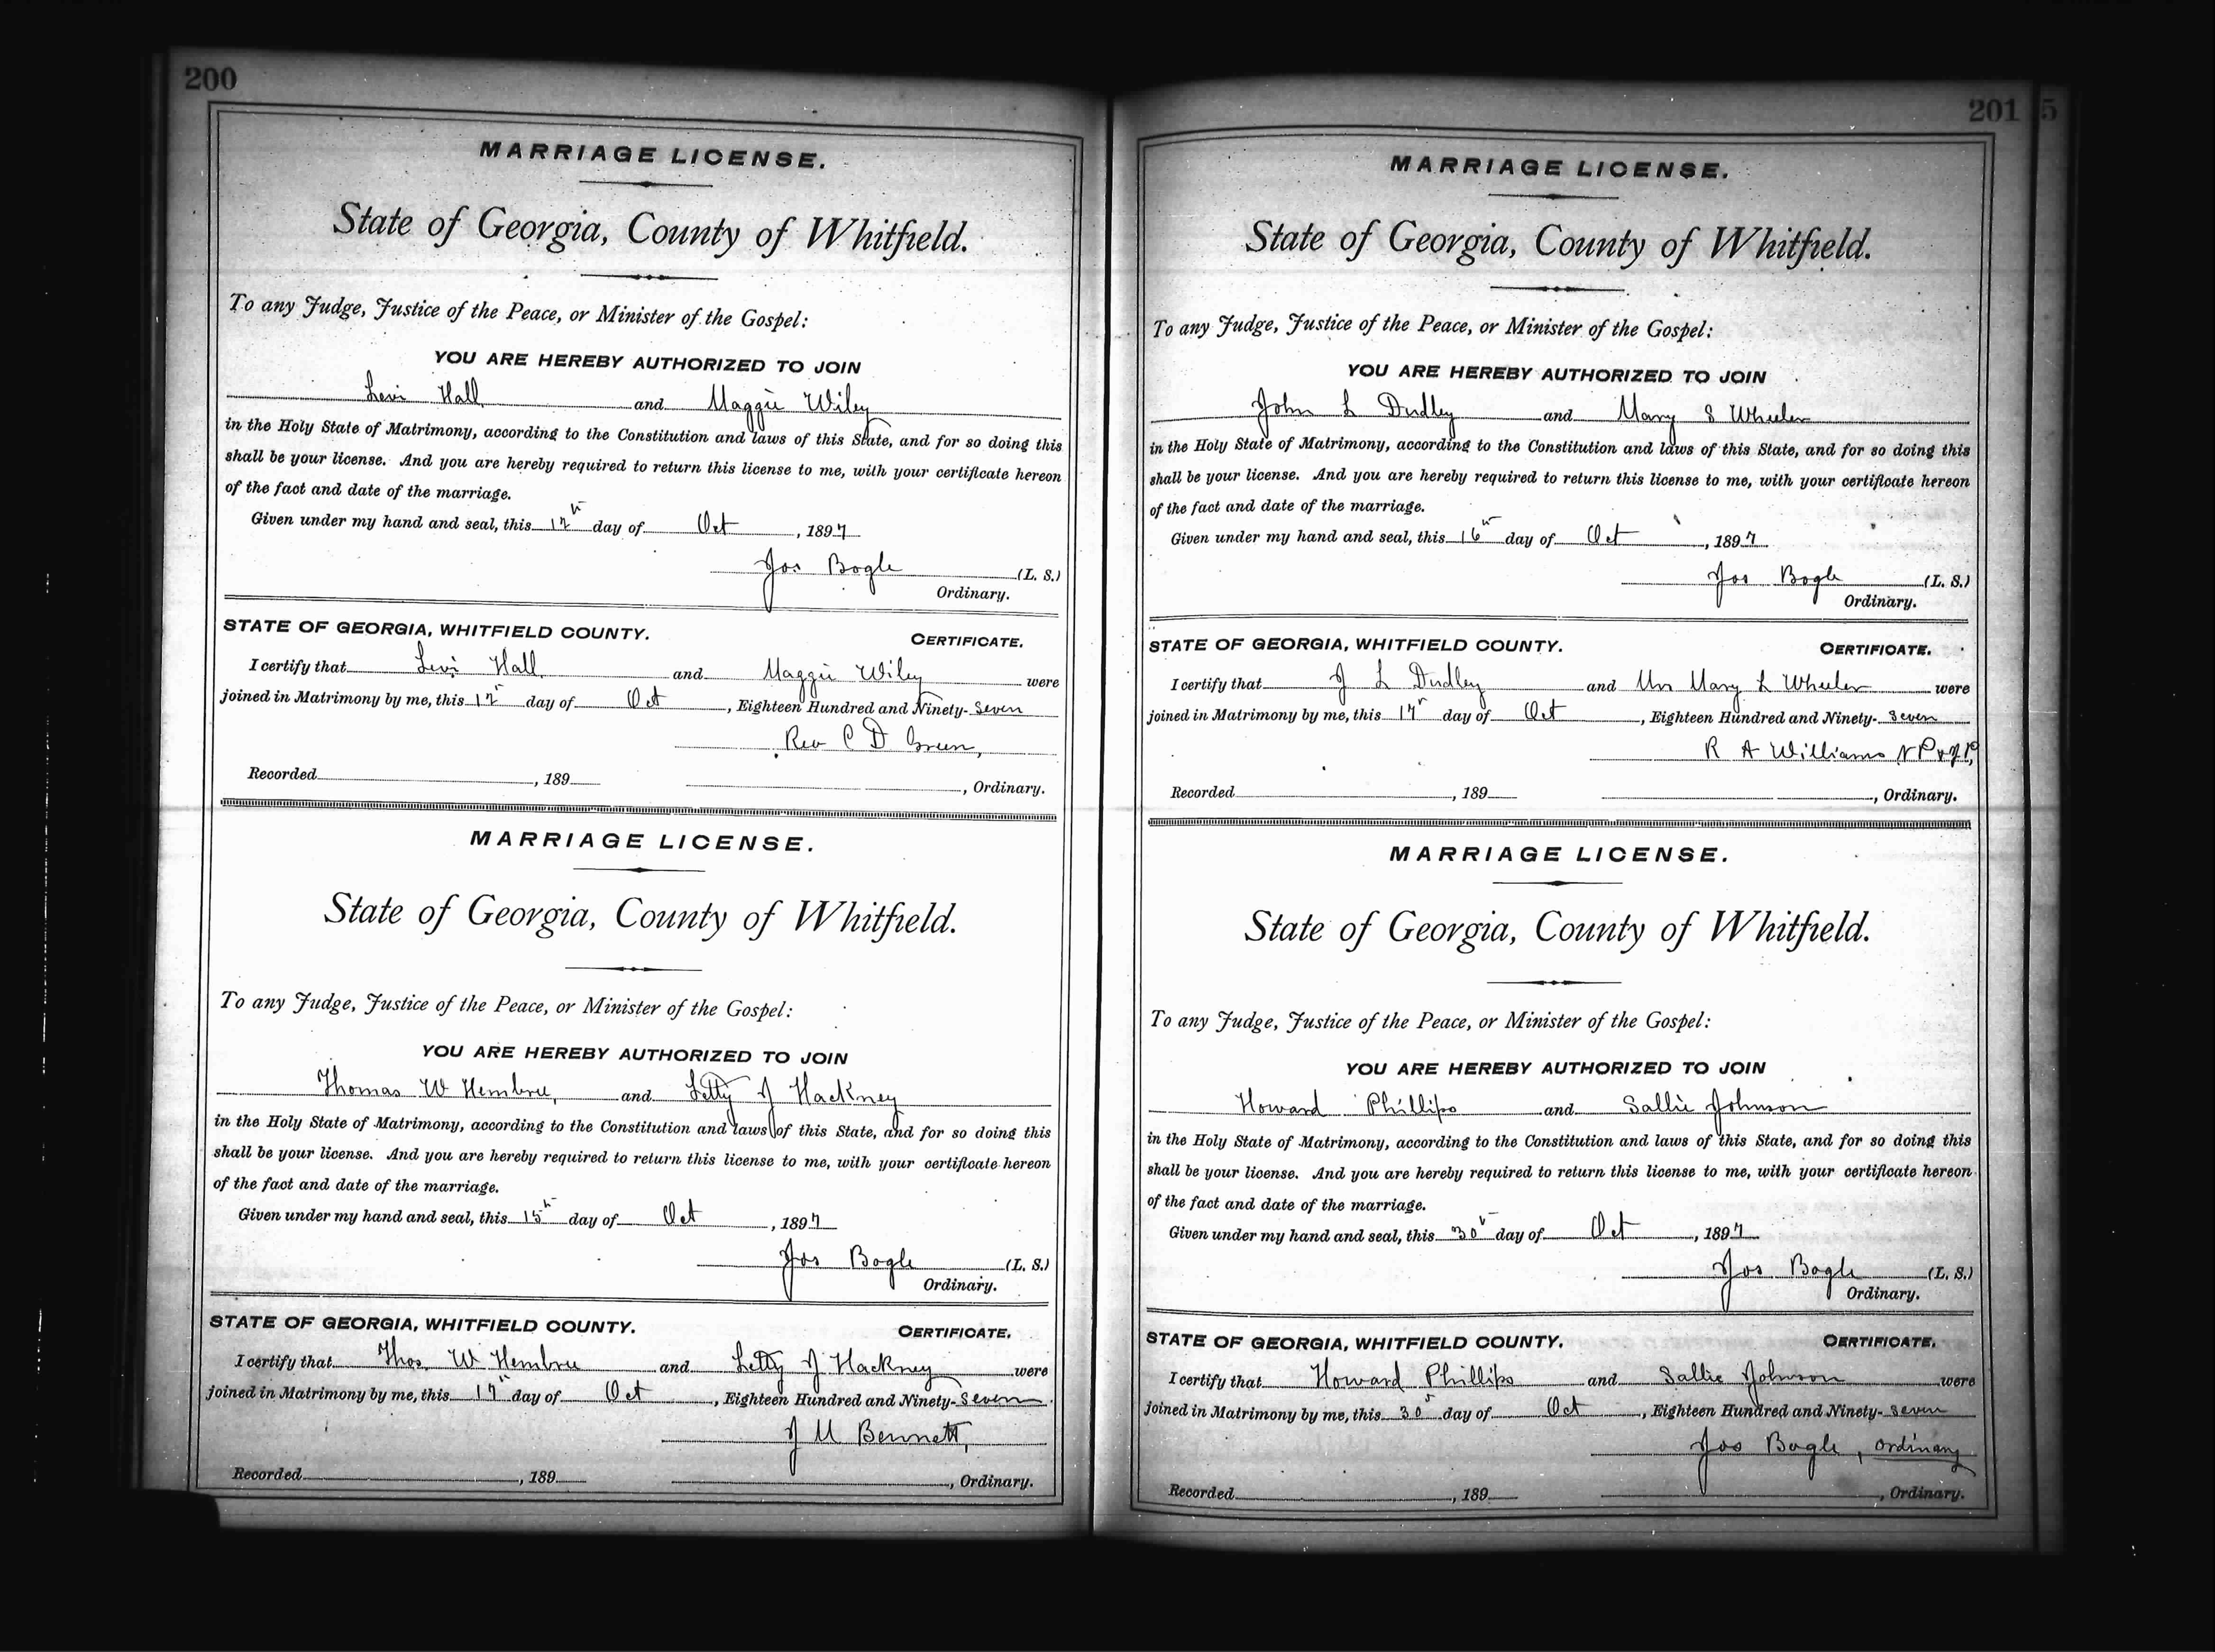 200
MARRIAGE LICENSE.
State of Georgia, County of Whitfield.
To any Judge, Justice of the Peace, or Minister of the Gospel:
YOU ARE HEREBY AUTHORIZED TO JOIN
Levi Hall and Maggie Wiley
in the Holy State of Matrimony, according to the Constitution and laws of this State, and for so doing this
shall be your license. And you are hereby required to return this license to me, with your certificate hereon
of the fact and date of the marriage.
Given under my hand and seal, this 12th day of Oct, 1897
Jos Bogle (L. S.)
Ordinary.
STATE OF GEORGIA, WHITFIELD COUNTY. CERTIFICATE.
I certify that Levi Hall and Maggie Wiley were
joined in Matrimony by me, this 12 day of Oct, Eighteen Hundred and Ninety-Seven
Rev C D Green,
Recorded, 189 , Ordinary.
MARRIAGE LICENSE.
State of Georgia, County of Whitfield.
To any Judge, Justice of the Peace, or Minister of the Gospel:
YOU ARE HEREBY AUTHORIZED TO JOIN
Thomas W Hembree, and Letty J Hackney
in the Holy State of Matrimony, according to the Constitution and laws of this State, and for so doing this
shall be your license. And you are hereby required to return this license to me, with your certificate hereon
of the fact and date of the marriage.
Given under my hand and seal, this 15th day of Oct, 1897
Jos Bogle (L. S.)
Ordinary.
STATE OF GEORGIA, WHITFIELD COUNTY. CERTIFICATE.
I certify that Thos W Hembree and Letty J Hackney were
joined in Matrimony by me, this 17th day of Oct, Eighteen Hundred and Ninety-Seven
J M Bennett,
Recorded, 189 , Ordinary.
201 5
MARRIAGE LICENSE.
State of Georgia, County of Whitfield.
To any Judge, Justice of the Peace, or Minister of the Gospel:
YOU ARE HEREBY AUTHORIZED TO JOIN
John L Dudley and Mary S Wheeler
in the Holy State of Matrimony, according to the Constitution and laws of this State, and for so doing this
shall be your license. And you are hereby required to return this license to me, with your certificate hereon
of the fact and date of the marriage.
Given under my hand and seal, this 16th day of Oct, 1897
Jos Bogle (L. S.)
Ordinary.
STATE OF GEORGIA, WHITFIELD COUNTY. CERTIFICATE.
I certify that J L Dudley and Mrs Mary L Wheeler were
joined in Matrimony by me, this 17 day of Oct, Eighteen Hundred and Ninety-seven
R A Williams N P & J P,
Recorded, 189 , Ordinary.
MARRIAGE LICENSE.
State of Georgia, County of Whitfield.
To any Judge, Justice of the Peace, or Minister of the Gospel:
YOU ARE HEREBY AUTHORIZED TO JOIN
Howard Phillips and Sallie Johnson
in the Holy State of Matrimony, according to the Constitution and laws of this State, and for so doing this
shall be your license. And you are hereby required to return this license to me, with your certificate hereon
of the fact and date of the marriage.
Given under my hand and seal, this 30th day of Oct, 1897
Jos Bogle (L. S.)
Ordinary.
STATE OF GEORGIA, WHITFIELD COUNTY. CERTIFICATE.
I certify that Howard Phillips and Sallie Johnson were
joined in Matrimony by me, this 30 day of Oct, Eighteen Hundred and Ninety-seven
Jos Bogle, ordinary
Recorded, 189 , Ordinary.